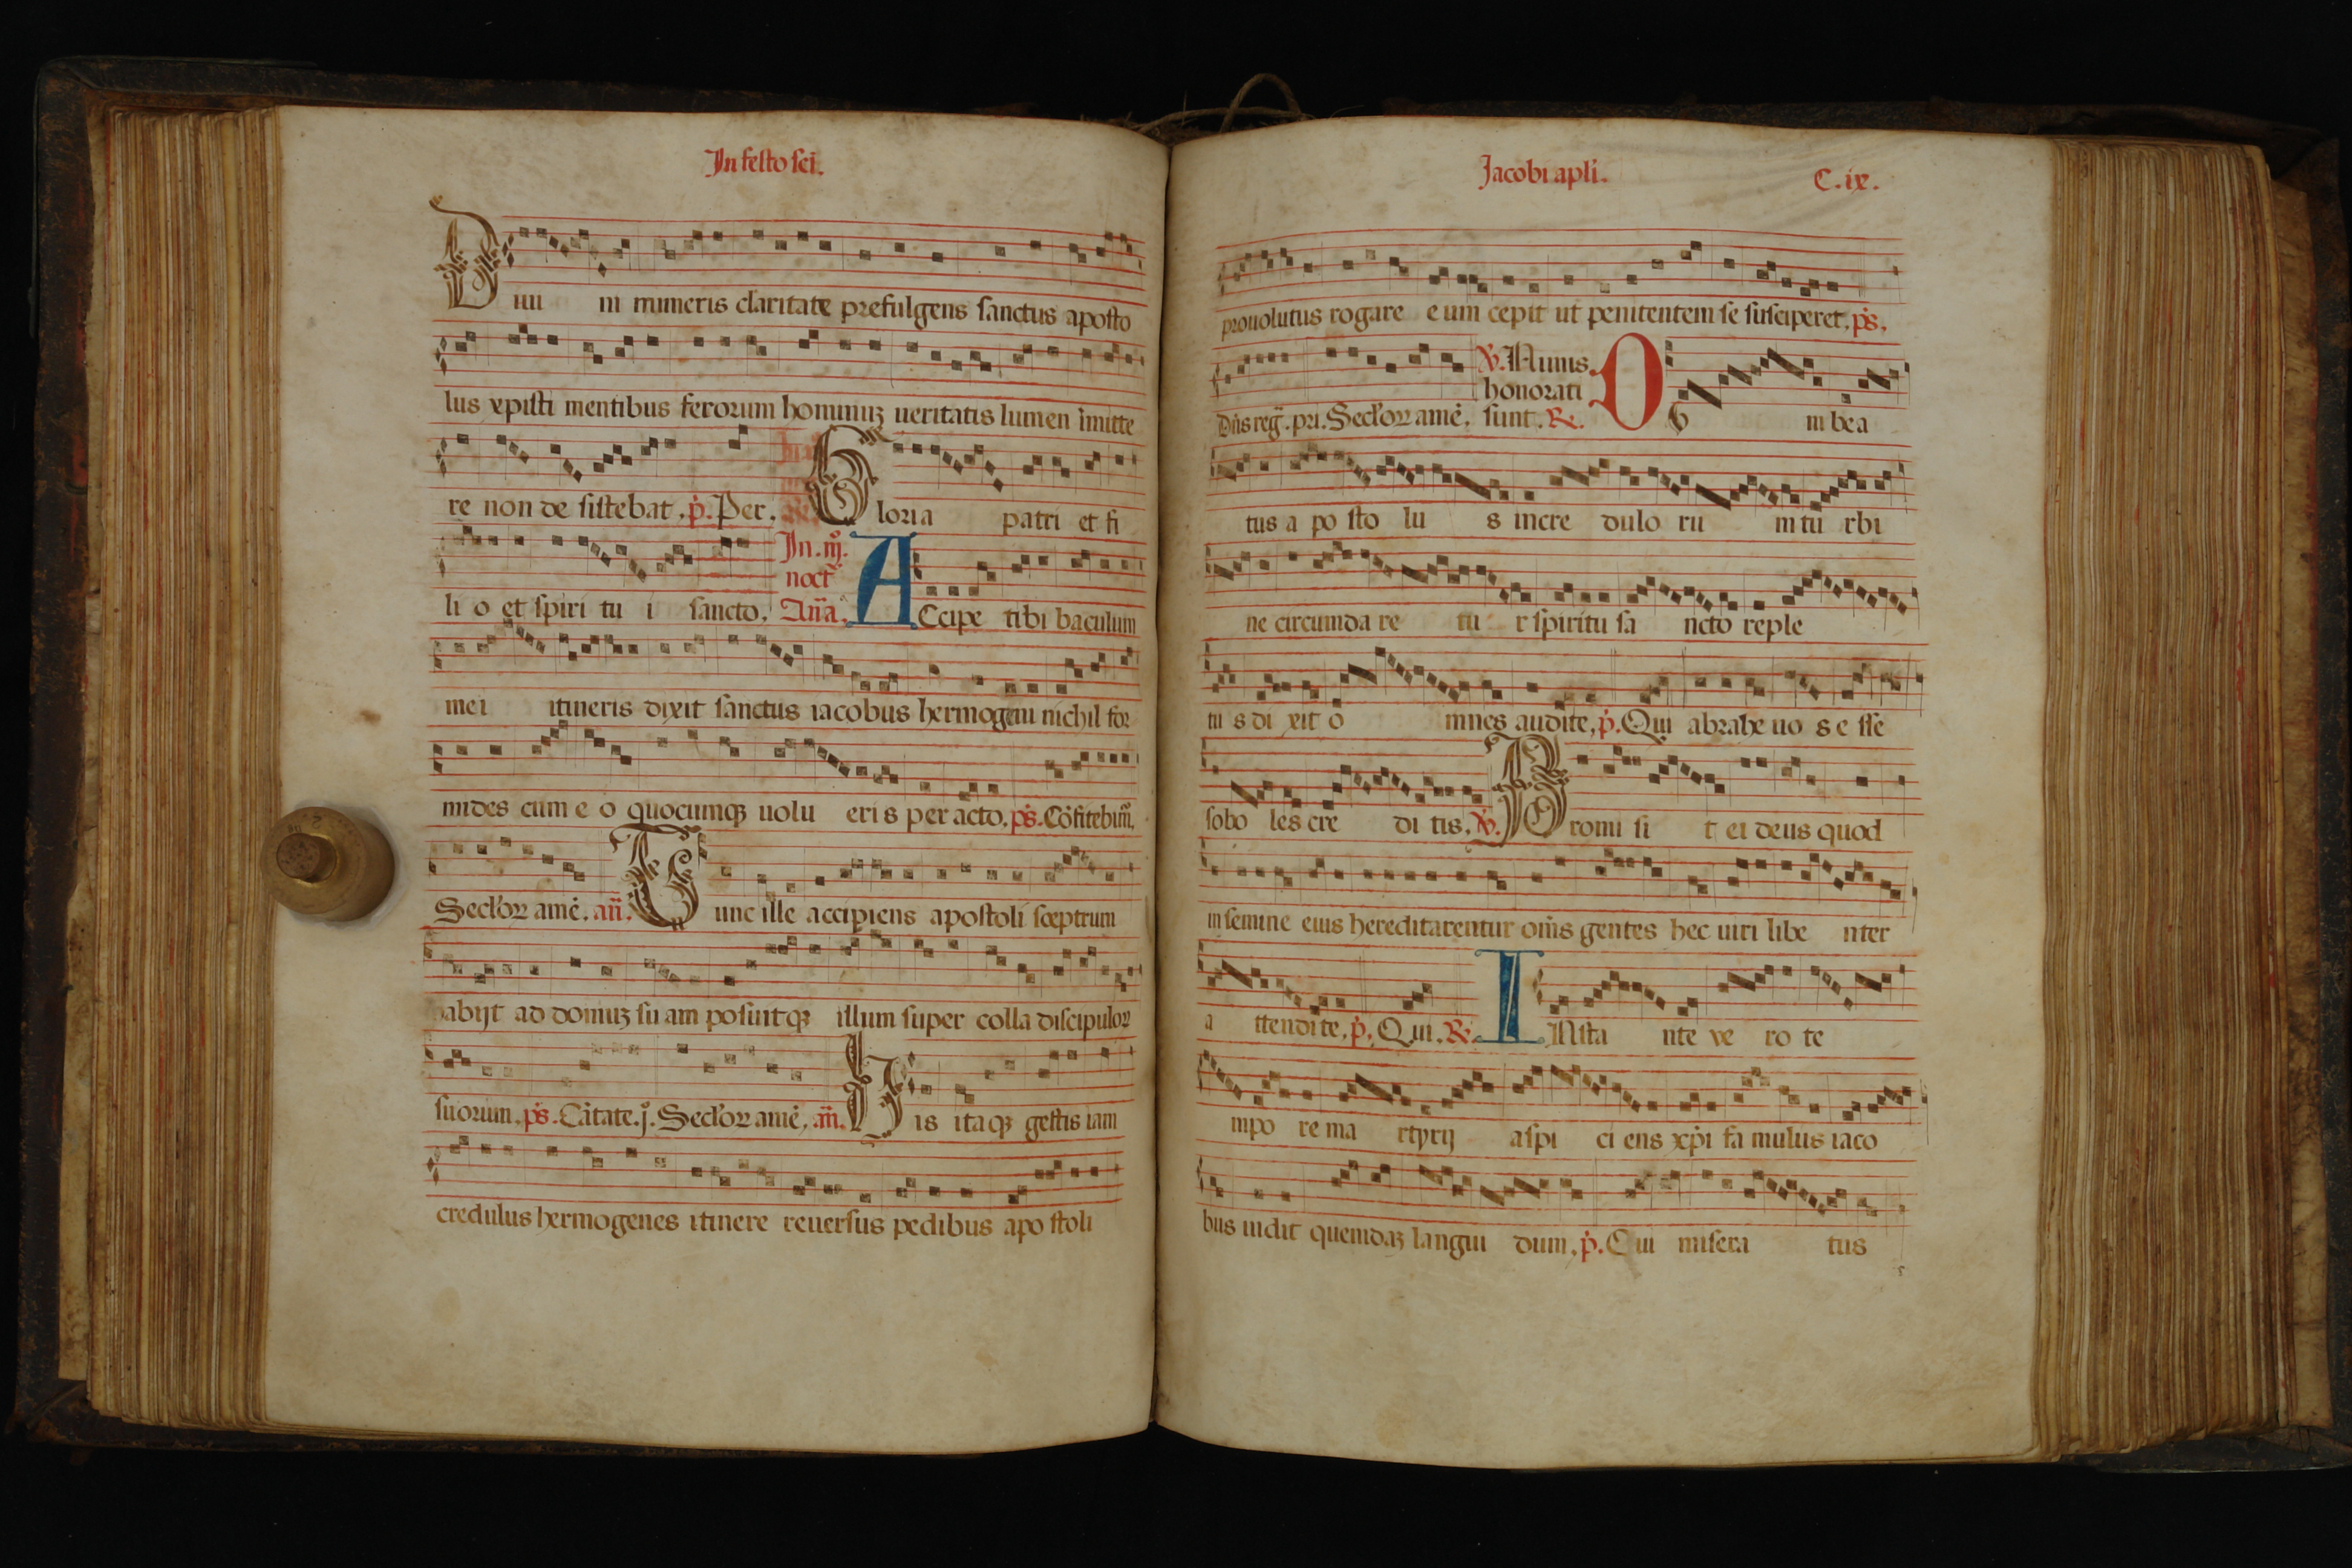 In festo sci.
Diui ni muneris claritate prefulgens sanctus aposto
lus xpisti mentibus ferorum hominuz ueritatis lumen imitte
re non de sistebat. p. Per. Gloria patri et fi
li o et spiri tu i sancto. In .iij.
noct
Ana. ACcipe tibi baculum
mei itineris dixit sanctus iacobus hermogeni nichil for
mides cum e o quocumqz uolu eri s per acto. ps. Cofitebim.
Seclor ame. an. Tunc ille accipiens apostoli sceptrum
abijt ad domuz su am posuitqz illum super colla discipulor
suorum. ps. Catate. j. Seclor ame. an. His itaqz gestis iam
credulus hermogenes itinere reuersus pedibus apo stoli
Jacobi apli. C. ix.
prouolutus rogare e um cepit ut penitentem se susciperet. ps.
℣. Nimis
honorati
Dns reg. pri. Seclor ame. sunt. ℟. Ob in bea
tus a po sto lu s incre dulo ru m tu rbi
ne circumda re tu r spiritu sa ncto reple
tu s di xit o mnes audite. p. Qui abrahe uo s e sse
sobo les cre di tis. ℣. Promi si t ei deus quod
in semine eius hereditarentur oms gentes hec uiri libe nter
a ttendite. p. Qui. ℟. INsta nte ve ro te
mpo re ma rtyrij aspi ci ens xpi fa mulus iaco
bus uidit quemdaz langui dum. p. Qui misera tus